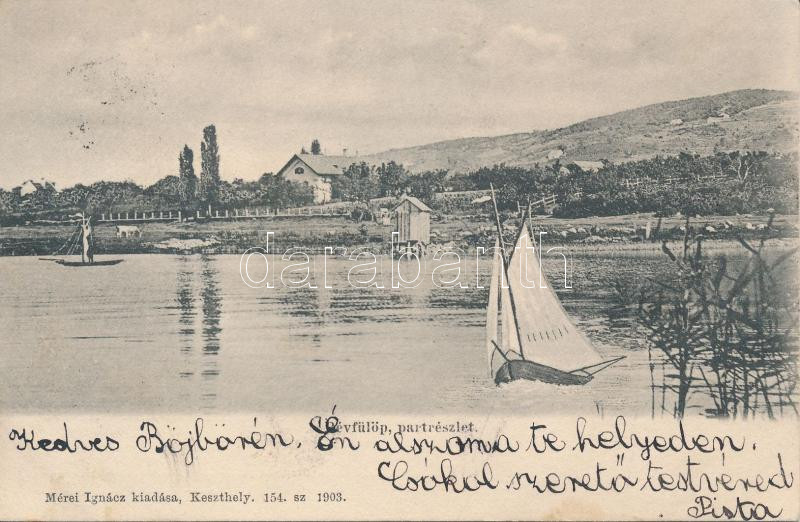 darabanth
Révfülöp, partrészlet.
Kedves Böjbörén. Én alszoma te helyeden.
Csókol szerető testvéred
Pista
Mérei Ignácz kiadása, Keszthely. 154. sz 1903.